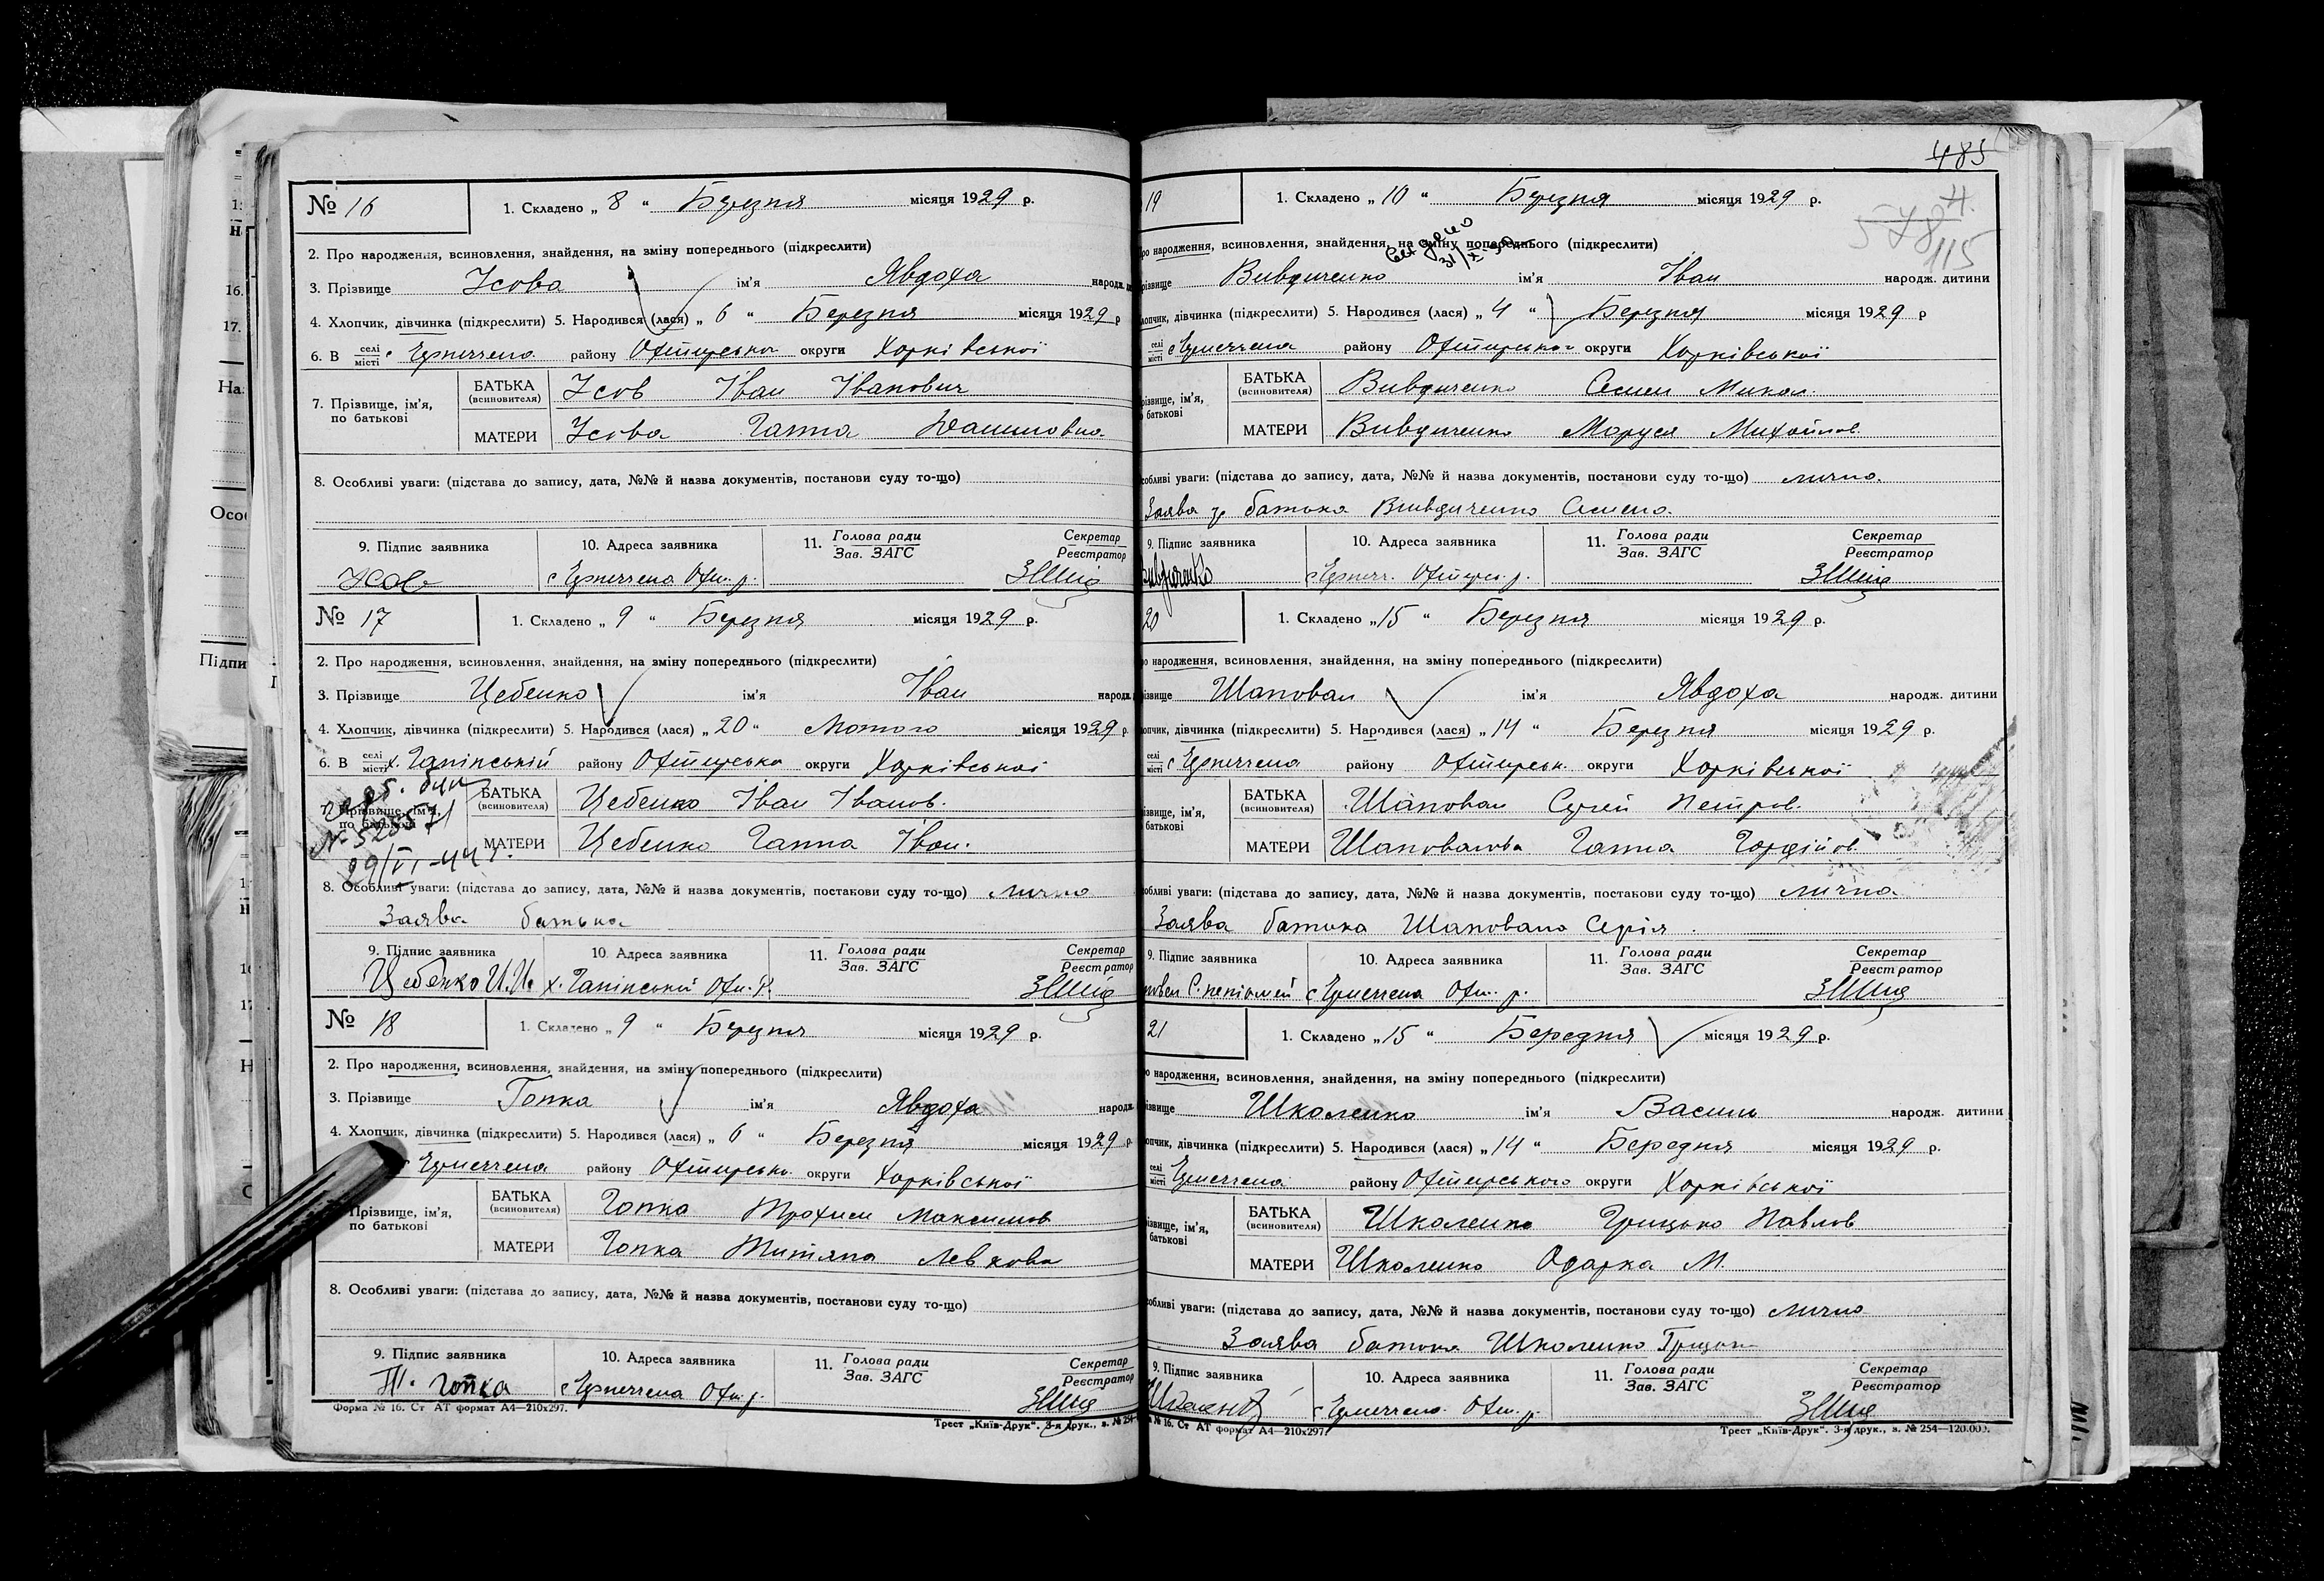 № 16
1. Складено „ 8 “ Березня місяця 1929 р.
2. Про народження, всиновлення, знайдення, на зміну попереднього (підкреслити)
3. Прізвище Усова ім'я Явдоха народж.
4. Хлопчик, дівчинка (підкреслити) 5. Народився (лася) „ 6 “ Березня місяця 1929 р
6. В селі місті с району округи Харківської
7. Прізвище, ім'я, по батькові
БАТЬКА (всиновителя) Усов Іван Іванович
МАТЕРИ Усова Ганна Даниловна
8. Особливі уваги: (підстава до запису, дата, №№ й назва документів, постанови суду то-що)
9. Підпис заявника 10. Адреса заявника 11. Голова ради Зав. ЗАГС Секретар Реєстратор
Усов
№ 17
1. Складено „ 9 “ Березня місяця 1929 р.
2. Про народження, всиновлення, знайдення, на зміну попереднього (підкреслити)
3. Прізвище Цебенко ім'я Іван народж.
4. Хлопчик, дівчинка (підкреслити) 5. Народився (лася) „ 20 “ Лютого місяця 1929 р.
6. В селі місті х. району округи Харківської
7. Прізвище, ім'я, по батькові
БАТЬКА (всиновителя) Цебенко Іван Іванов.
МАТЕРИ Цебенко Ганна Іван.
29/VI-44 г.
8. Особливі уваги: (підстава до запису, дата, №№ й назва документів, постанови суду то-що) лично
Заява батька
9. Підпис заявника 10. Адреса заявника 11. Голова ради Зав. ЗАГС Секретар Реєстратор
Цебенко И.И. х.
№ 18
1. Складено „ 9 “ Березня місяця 1929 р.
2. Про народження, всиновлення, знайдення, на зміну попереднього (підкреслити)
3. Прізвище Гопка ім'я Явдоха народж.
4. Хлопчик, дівчинка (підкреслити) 5. Народився (лася) „ 6 “ Березня місяця 1929 р.
району округи Харківської
Прізвище, ім'я, по батькові
БАТЬКА (всиновителя) Гопка Трохим Максимов
МАТЕРИ Гопка Титяна Левкова
8. Особливі уваги: (підстава до запису, дата, №№ й назва документів, постанови суду то-що)
9. Підпис заявника 10. Адреса заявника 11. Голова ради Зав. ЗАГС Секретар Реєстратор
Т. Гопка
Форма № 16. Ст АТ формат А4—210х297.
Трест „Київ-Друк“. 3-я друк., з. № 254
485
115
19
1. Складено „ 10 “ Березня місяця 1929 р.
народження, всиновлення, знайдення, на зміну попереднього (підкреслити)
Вивдиченко ім'я Іван народж. дитини
дівчинка (підкреслити) 5. Народився (лася) „ 4 “ Березня місяця 1929 р
селі місті с району округи Харківської
ім'я, батькові
БАТЬКА (всиновителя) Вивдиченко Семен Микол.
МАТЕРИ Вивдиченко Маруся Михайлов.
уваги: (підстава до запису, дата, №№ й назва документів, постанови суду то-що) лично.
Заява батька Вивдиченко Семена.
9. Підпис заявника 10. Адреса заявника 11. Голова ради Зав. ЗАГС Секретар Реєстратор
20
1. Складено „ 15 “ Березня місяця 1929 р.
народження, всиновлення, знайдення, на зміну попереднього (підкреслити)
Шаповал ім'я Явдоха народж. дитини
дівчинка (підкреслити) 5. Народився (лася) „ 14 “ Березня місяця 1929 р.
селі місті с району округи Харківської
ім'я, батькові
БАТЬКА (всиновителя) Шаповал Сергей Петров.
МАТЕРИ Шаповалова Ганна Гордійов
уваги: (підстава до запису, дата, №№ й назва документів, постанови суду то-що) лична.
Заява батька Шаповала Серія.
9. Підпис заявника 10. Адреса заявника 11. Голова ради Зав. ЗАГС Секретар Реєстратор
21
1. Складено „ 15 “ Бередня місяця 1929 р.
народження, всиновлення, знайдення, на зміну попереднього (підкреслити)
Школенко ім'я Василь народж. дитини
дівчинка (підкреслити) 5. Народився (лася) „ 14 “ Бередня місяця 1929 р.
селі місті району Охтирського округи Харківської
ім'я, батькові
БАТЬКА (всиновителя) Школенко Грицько Павлов
МАТЕРИ Школенко Одарка М.
уваги: (підстава до запису, дата, №№ й назва документів, постанови суду то-що) лично
Заява батька Школенко
9. Підпис заявника 10. Адреса заявника 11. Голова ради Зав. ЗАГС Секретар Реєстратор
№ 16. Ст АТ формат А4—210х297.
Трест „Київ-Друк“. 3-я друк., з. № 254—120.000.